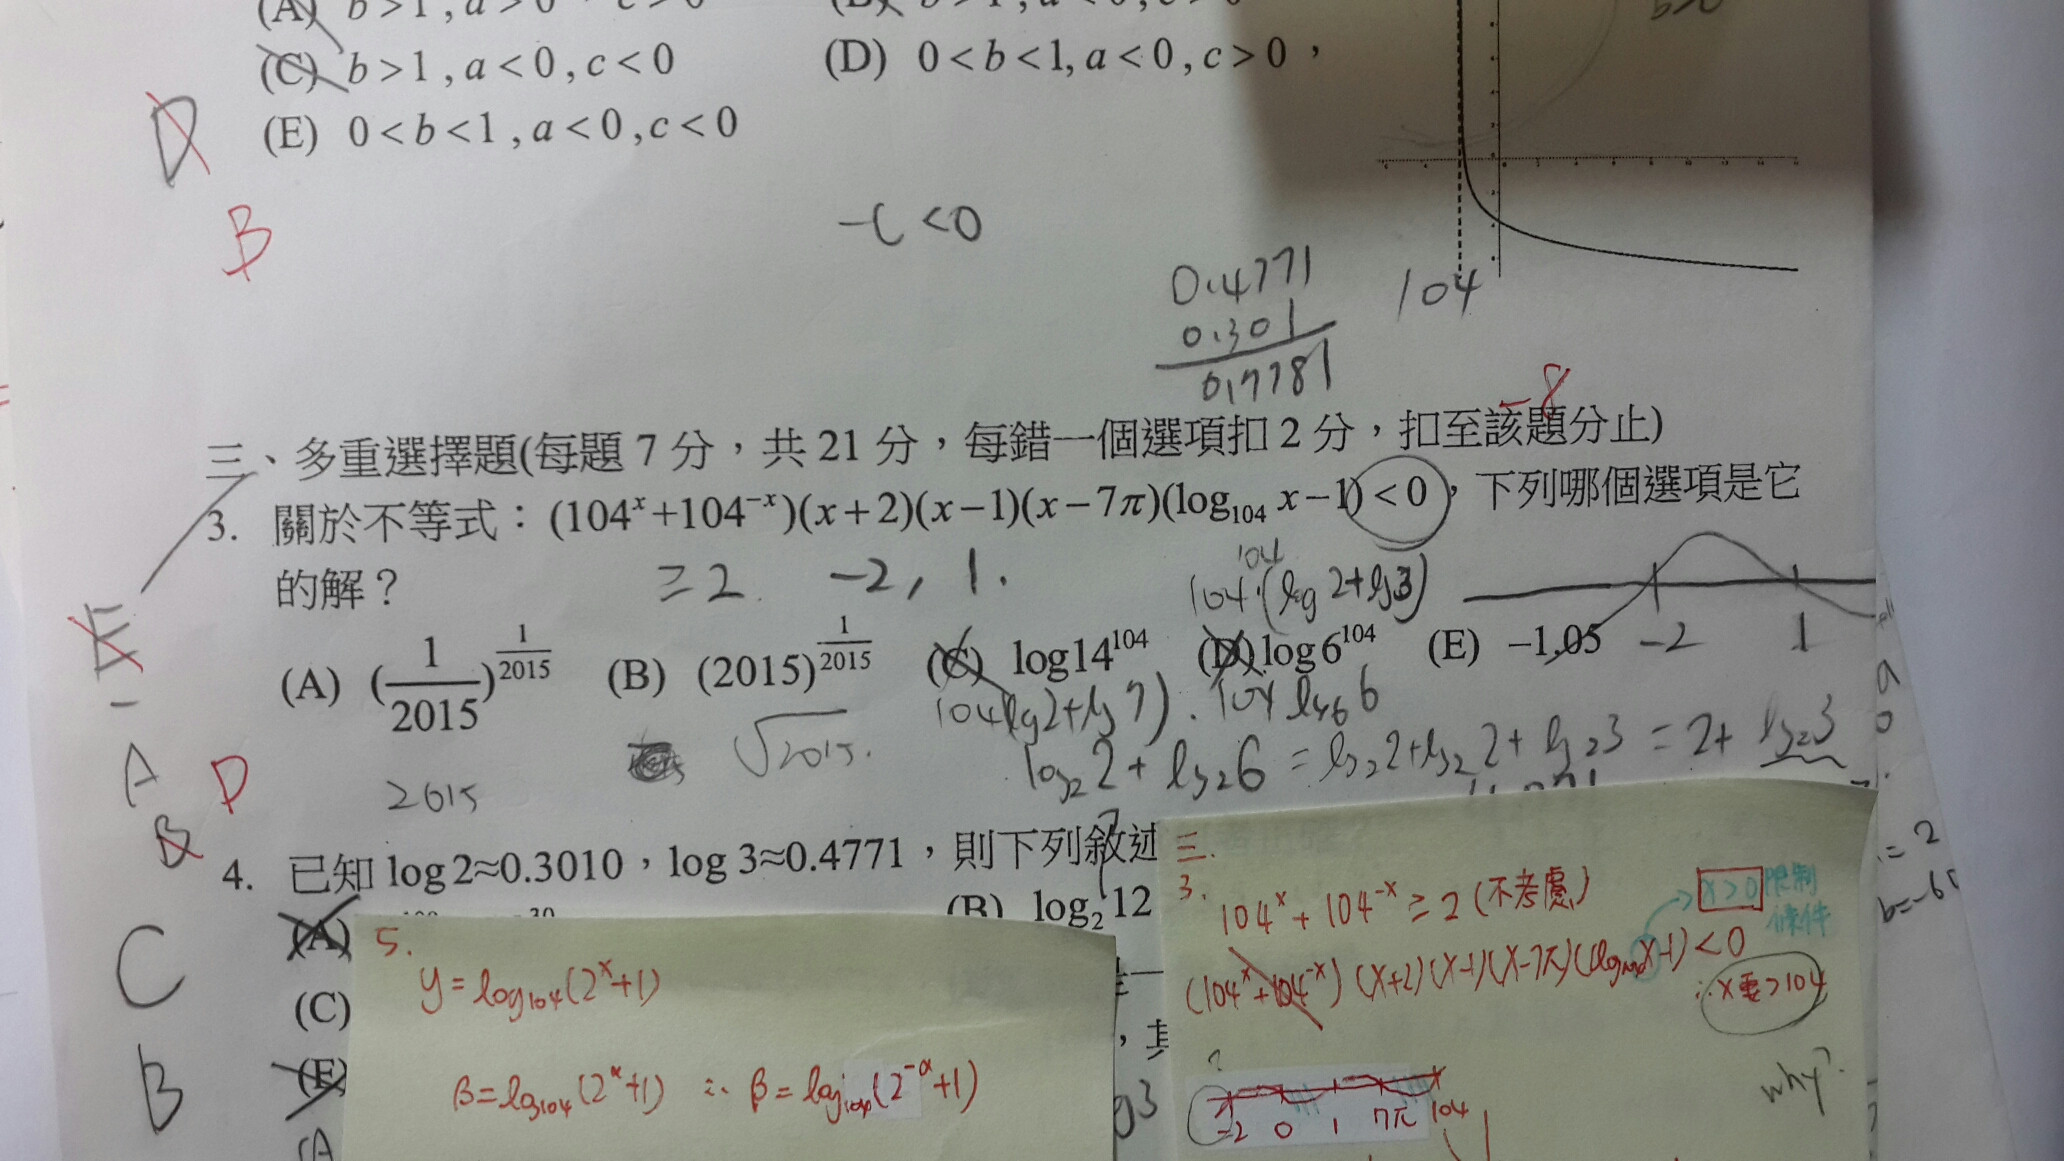 (A) b>1, a>0, c>0
(B) b>1, a<0, c>0
(C) b>1, a<0, c<0
(D) 0<b<1, a<0, c>0，
(E) 0<b<1, a<0, c<0
D
B
-c<0
0.4771
0.301
0.7781
104
-8
三、多重選擇題(每題 7 分，共 21 分，每錯一個選項扣 2 分，扣至該題分止)
3. 關於不等式：(104^x+104^{-x})(x+2)(x-1)(x-7π)(log_{104} x-1)<0，下列哪個選項是它
的解？
≥2 -2, 1.
104
104·(log 2+log3)
-2 1
E
(A) (1/2015)^{1/2015} (B) (2015)^{1/2015} (C) log14^{104} (D) log6^{104} (E) -1.05
104(log2+log7). 104 log 6
√2015.
2015
log_2 2+log_2 6=log_2 2+log_2 2+log_2 3=2+log_2 3
A
D
B
4. 已知 log2≈0.3010，log3≈0.4771，則下列敘述
(A)
(B) log_2 12
(C)
(E)
C
B
=2
三.
3.
104^x+104^{-x}≥2 (不考慮)
x>0 限制
條件
(104^x+104^{-x})(x+2)(x-1)(x-7π)(log_{104}x-1)<0
∴x要>104
why?
?
-2 0 1 7π 104
5.
y=log_{104}(2^x+1)
β=log_{104}(2^α+1) ∴ β=log_{104}(2^{-α}+1)
，其
(A